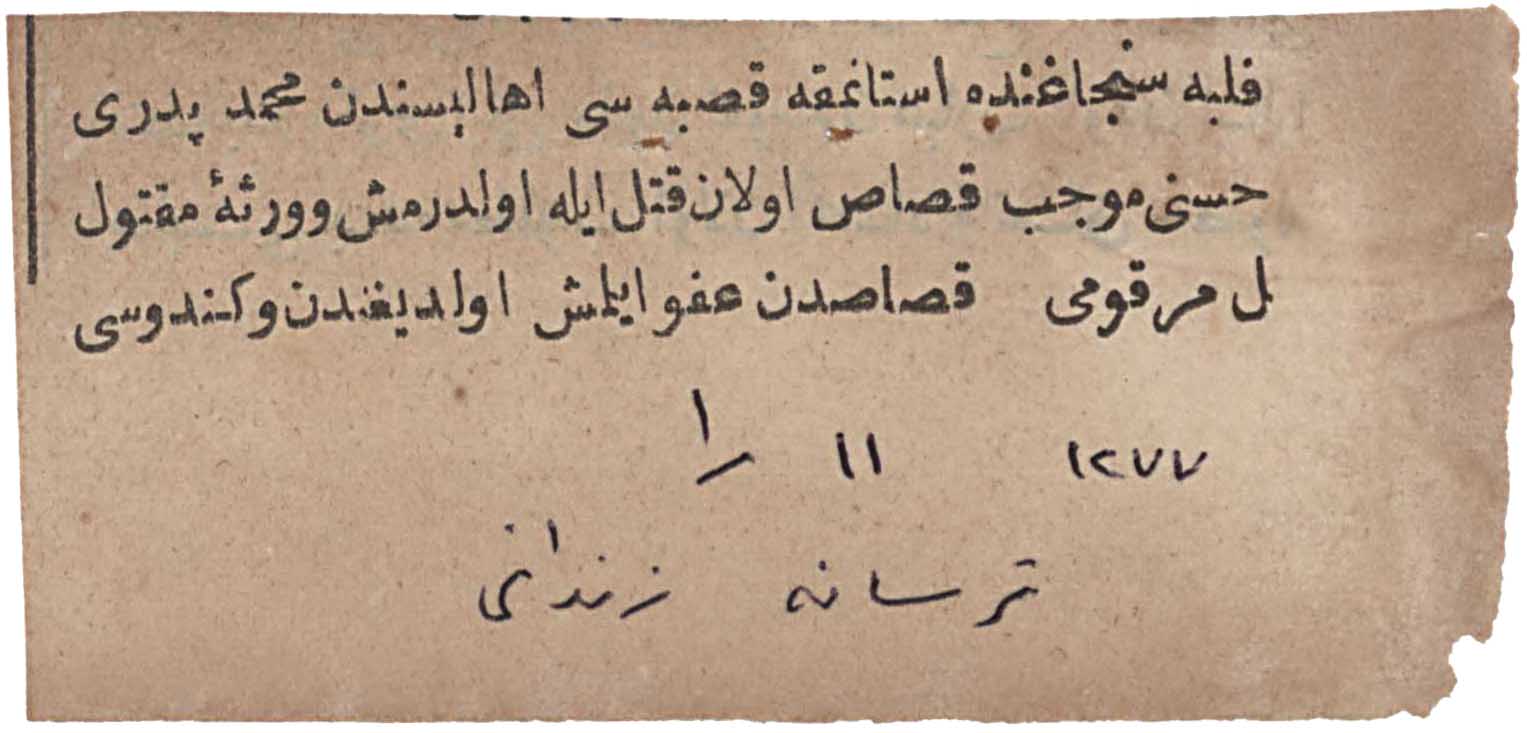 فلبه سنجاغنده استانمقه قصبه سی اهالیسندن محمد پدری
حسنی موجب قصاص اولان قتل ایله اولدرمش وورثهٔ مقتول
ل مرقومی قصاصدن عفو ایلمش اولدیغندن وکندوسی
١٢٧٧ ١١ را
ترسانه زندانی